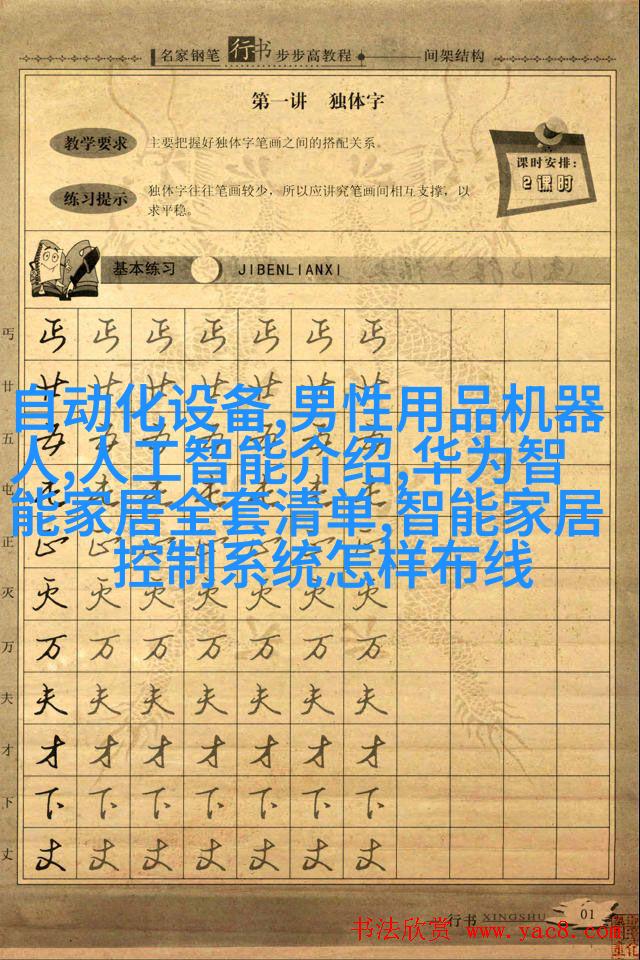 名家钢笔 行书 步步高教程 间架结构
第一讲 独体字
教学要求 主要把握好独体字笔画之间的搭配关系。
课时安排:
2课时
练习提示 独体字往往笔画较少，所以应讲究笔画间相互支撑，以
求平稳。
基本练习 JIBENLIANXI
丐 丐 丐 丐 丐 丐 丐 丐
廿 廿 廿 廿 廿 廿 廿 廿
自动化设备,男性用品机器
五 五 五 五 五 五 五 五
人,人工智能介绍,华为智
屯 屯 屯 屯 屯 屯 屯 屯
能家居全套清单,智能家居
正 正 正 正 正 正 正 正
控制系统怎样布线
灭 灭 灭 灭 灭 灭 灭 灭
万 万 万 万 万 万 万 万
夫 夫 夫 夫 夫 夫 夫 夫
才 才 才 才 才 才 才 才
下 下 下 下 下 下 下 下
丈 丈 丈 丈 丈 丈 丈 丈
行书 XINGSHU 01
书法欣赏 www.yac8.com